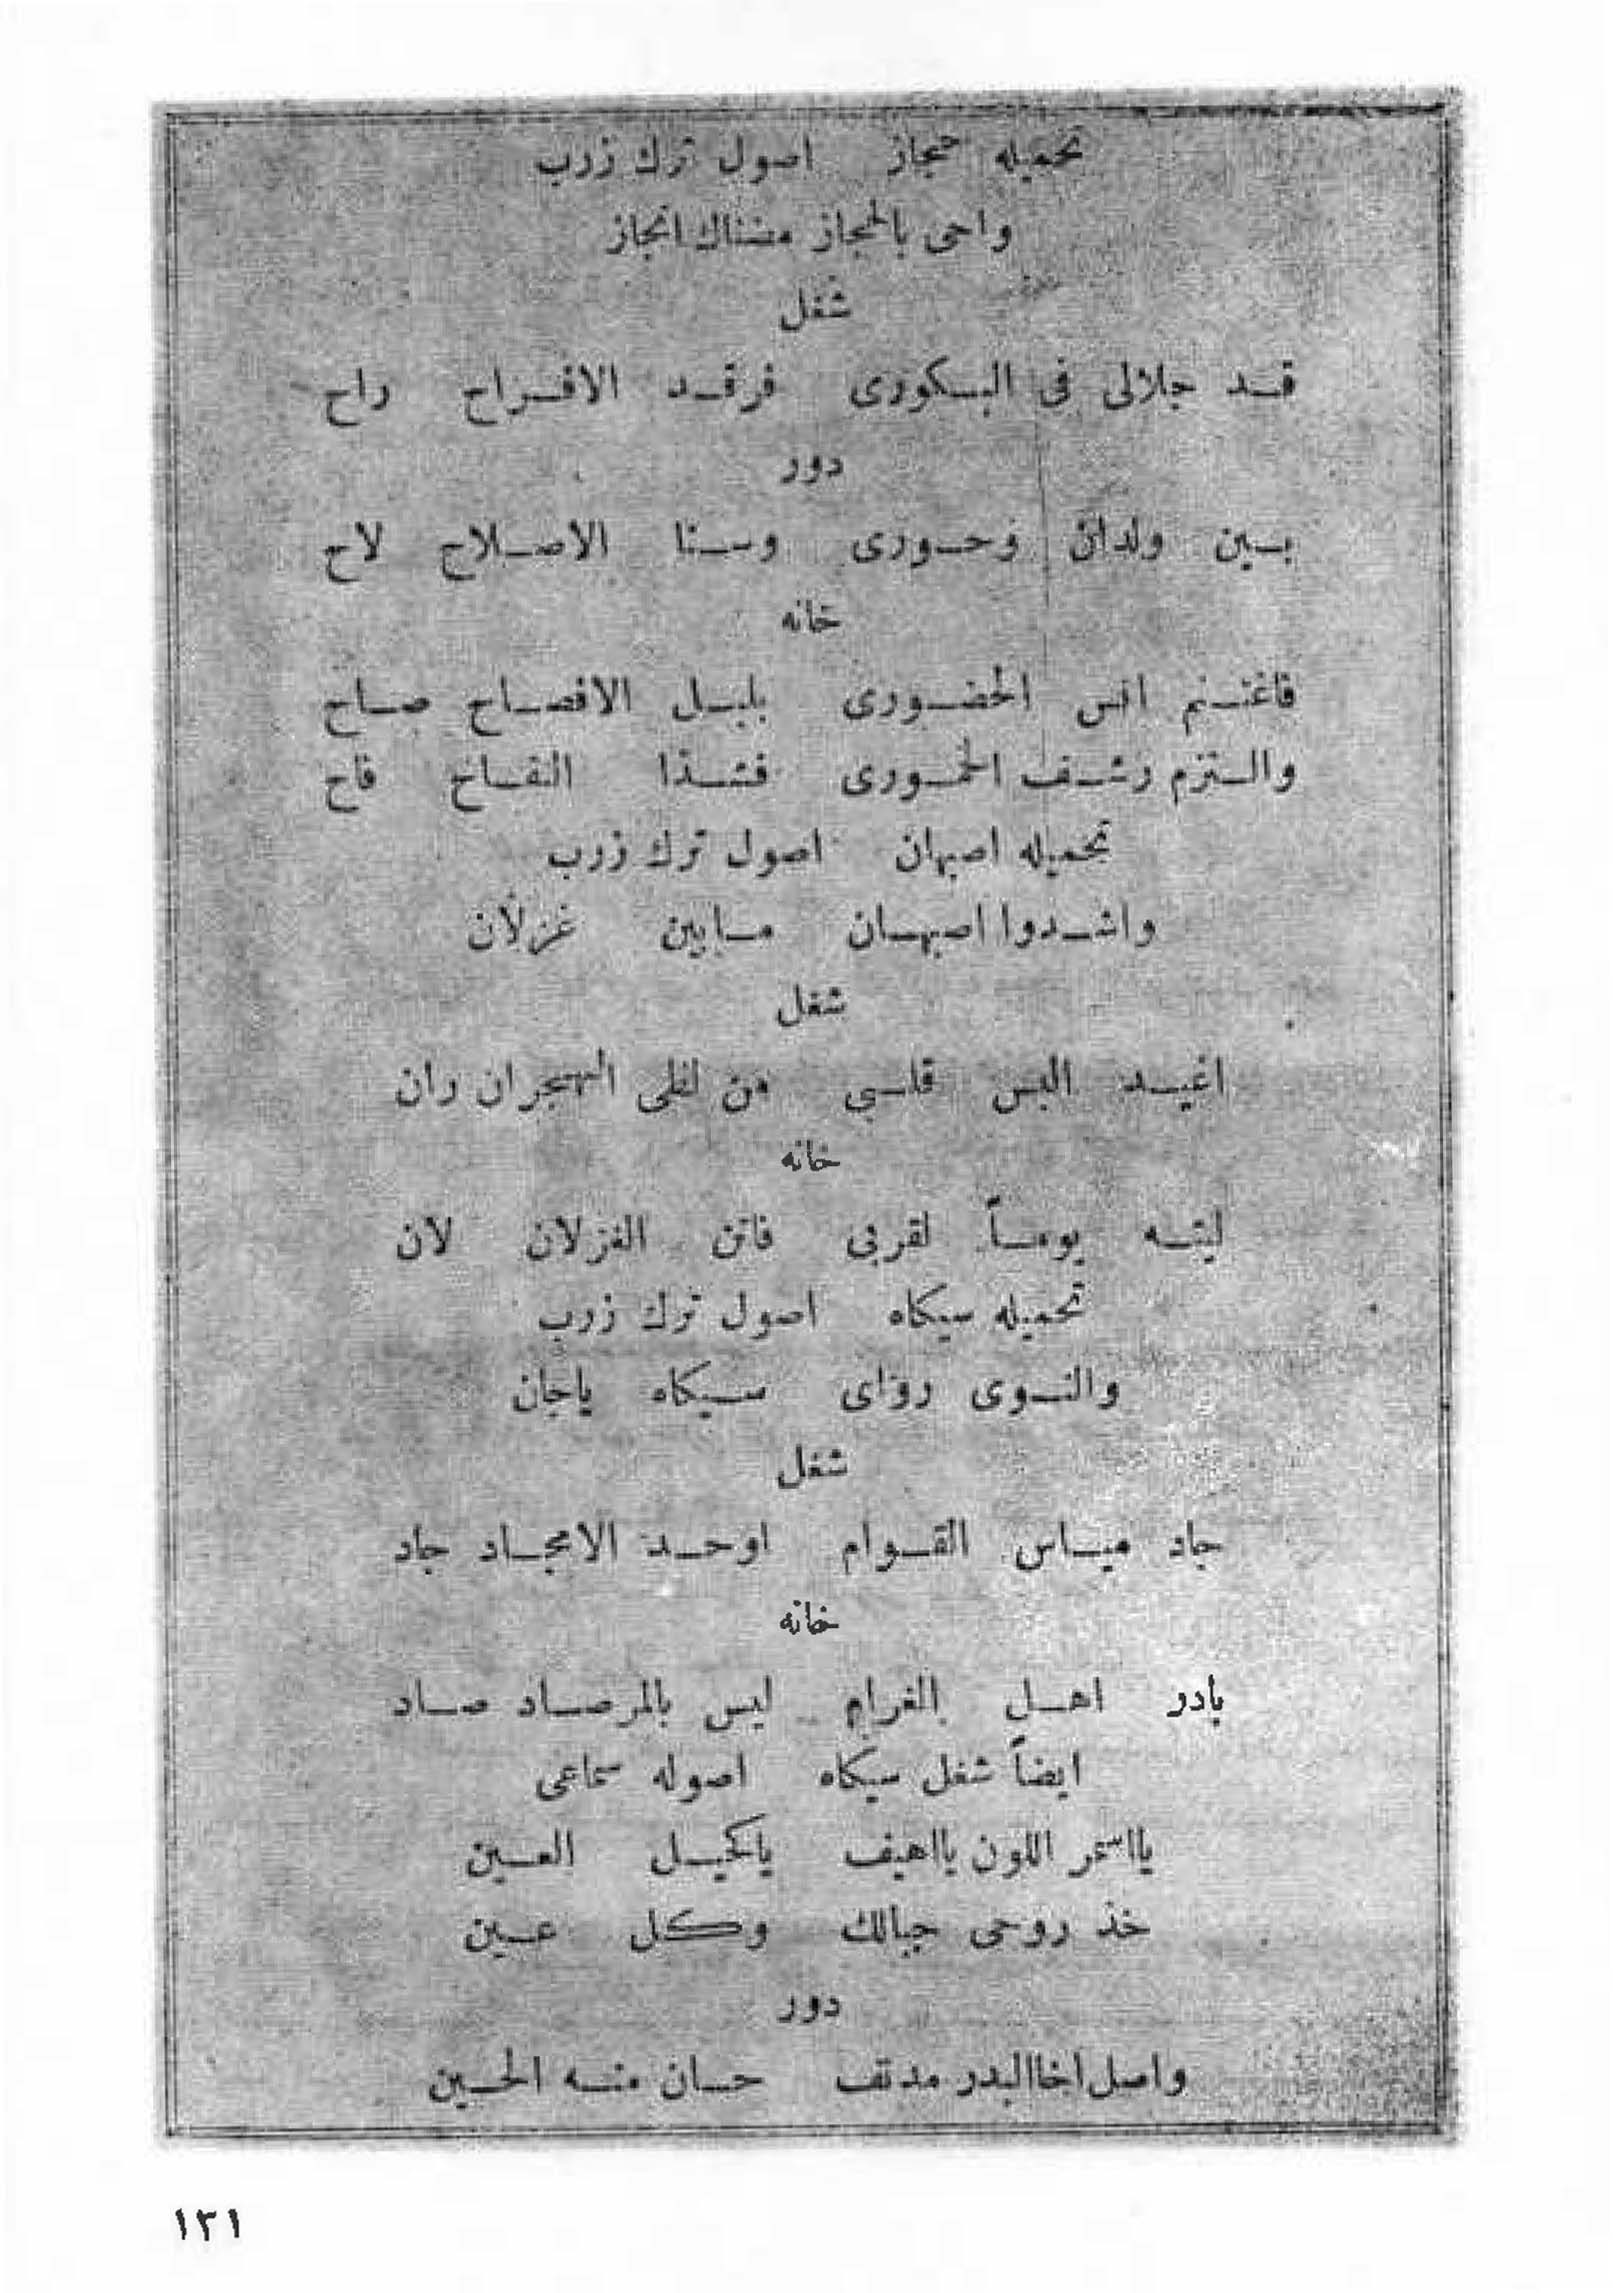 تحميله حجاز اصول ترك زرب
واحى بالحجاز مثناك انجاز
شغل
قد جلالى فى البكورى فرقد الافراح راح
دور
بين ولدان وحورى وسنا الاصلاح لاح
خانه
فاغتنم انس الحضورى بلبل الافصاح صاح
والتزم رشف الخمورى فشذا النفاح فاح
تحميله اصبهان اصول ترك زرب
واشدوا اصبهان مابين غزلان
شغل
اغيد البس قلبي من لظى الهجران ران
خانه
ليته يوماً لقربى فاتن الغزلان لان
تحميله سيكاه اصول ترك زرب
والنوى رواى سيكاه ياجان
شغل
جاد مياس القوام اوحد الامجاد جاد
خانه
بادر اهل الغرام ليس بالمرصاد صاد
ايضاً شغل سيكاه اصوله سماعى
يااسمر اللون يااهيف ياكحيل العين
خذ روحى جبالك وكل عين
دور
واصل اخاالبدر مدنف حسان منه الحين
١٣١